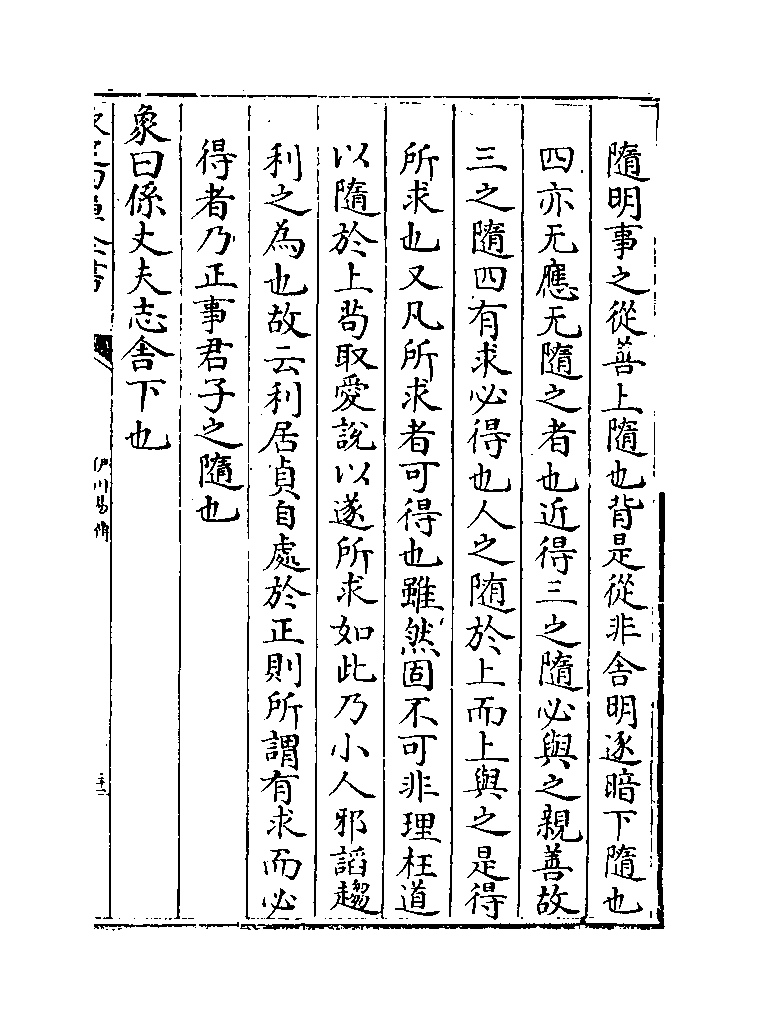 隨明事之從善上隨也背是從非舍明逐暗下隨也
四亦无應无隨之者也近得三之隨必與之親善故
三之隨四有求必得也人之随於上而上與之是得
所求也又凡所求者可得也雖然固不可非理枉道
以隨於上苟取愛說以遂所求如此乃小人邪謟趨
利之為也故云利居貞自處於正則所謂有求而必
得者乃正事君子之隨也
象曰係丈夫志舍下也
伊川易傳